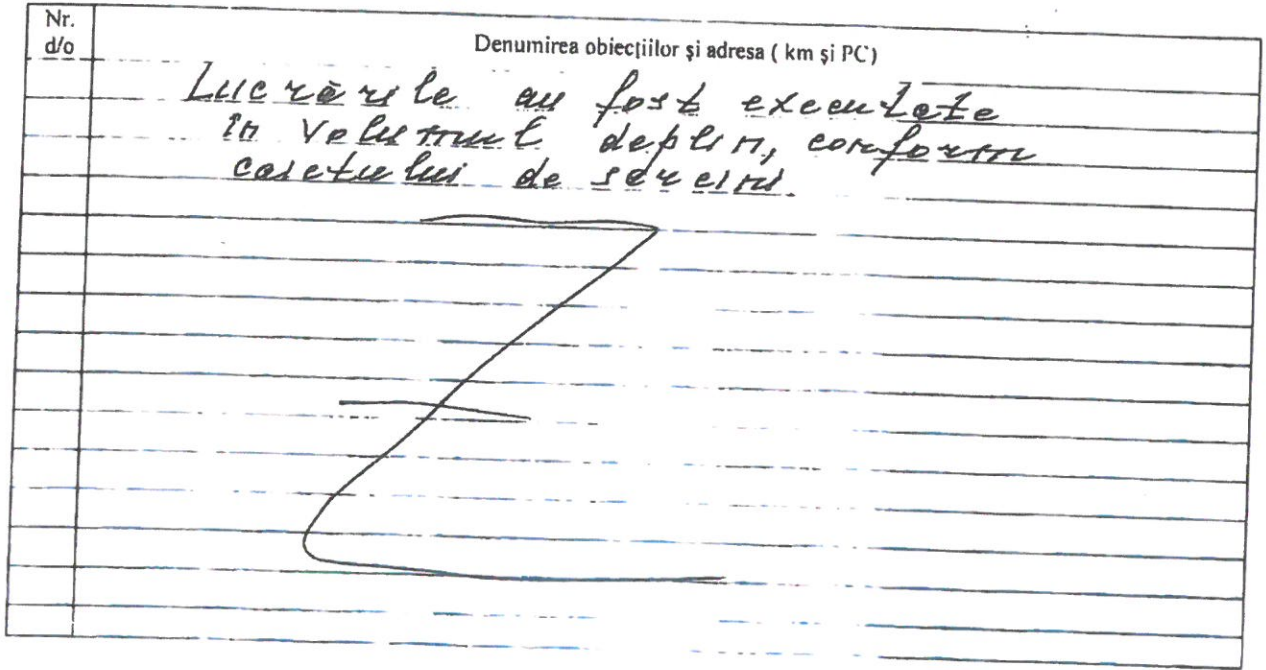 Nr.
d/o
Denumirea obiecțiilor și adresa ( km și PC)
Lucrările au fost executate
în volumul deplin, conform
caietului de sarcini.